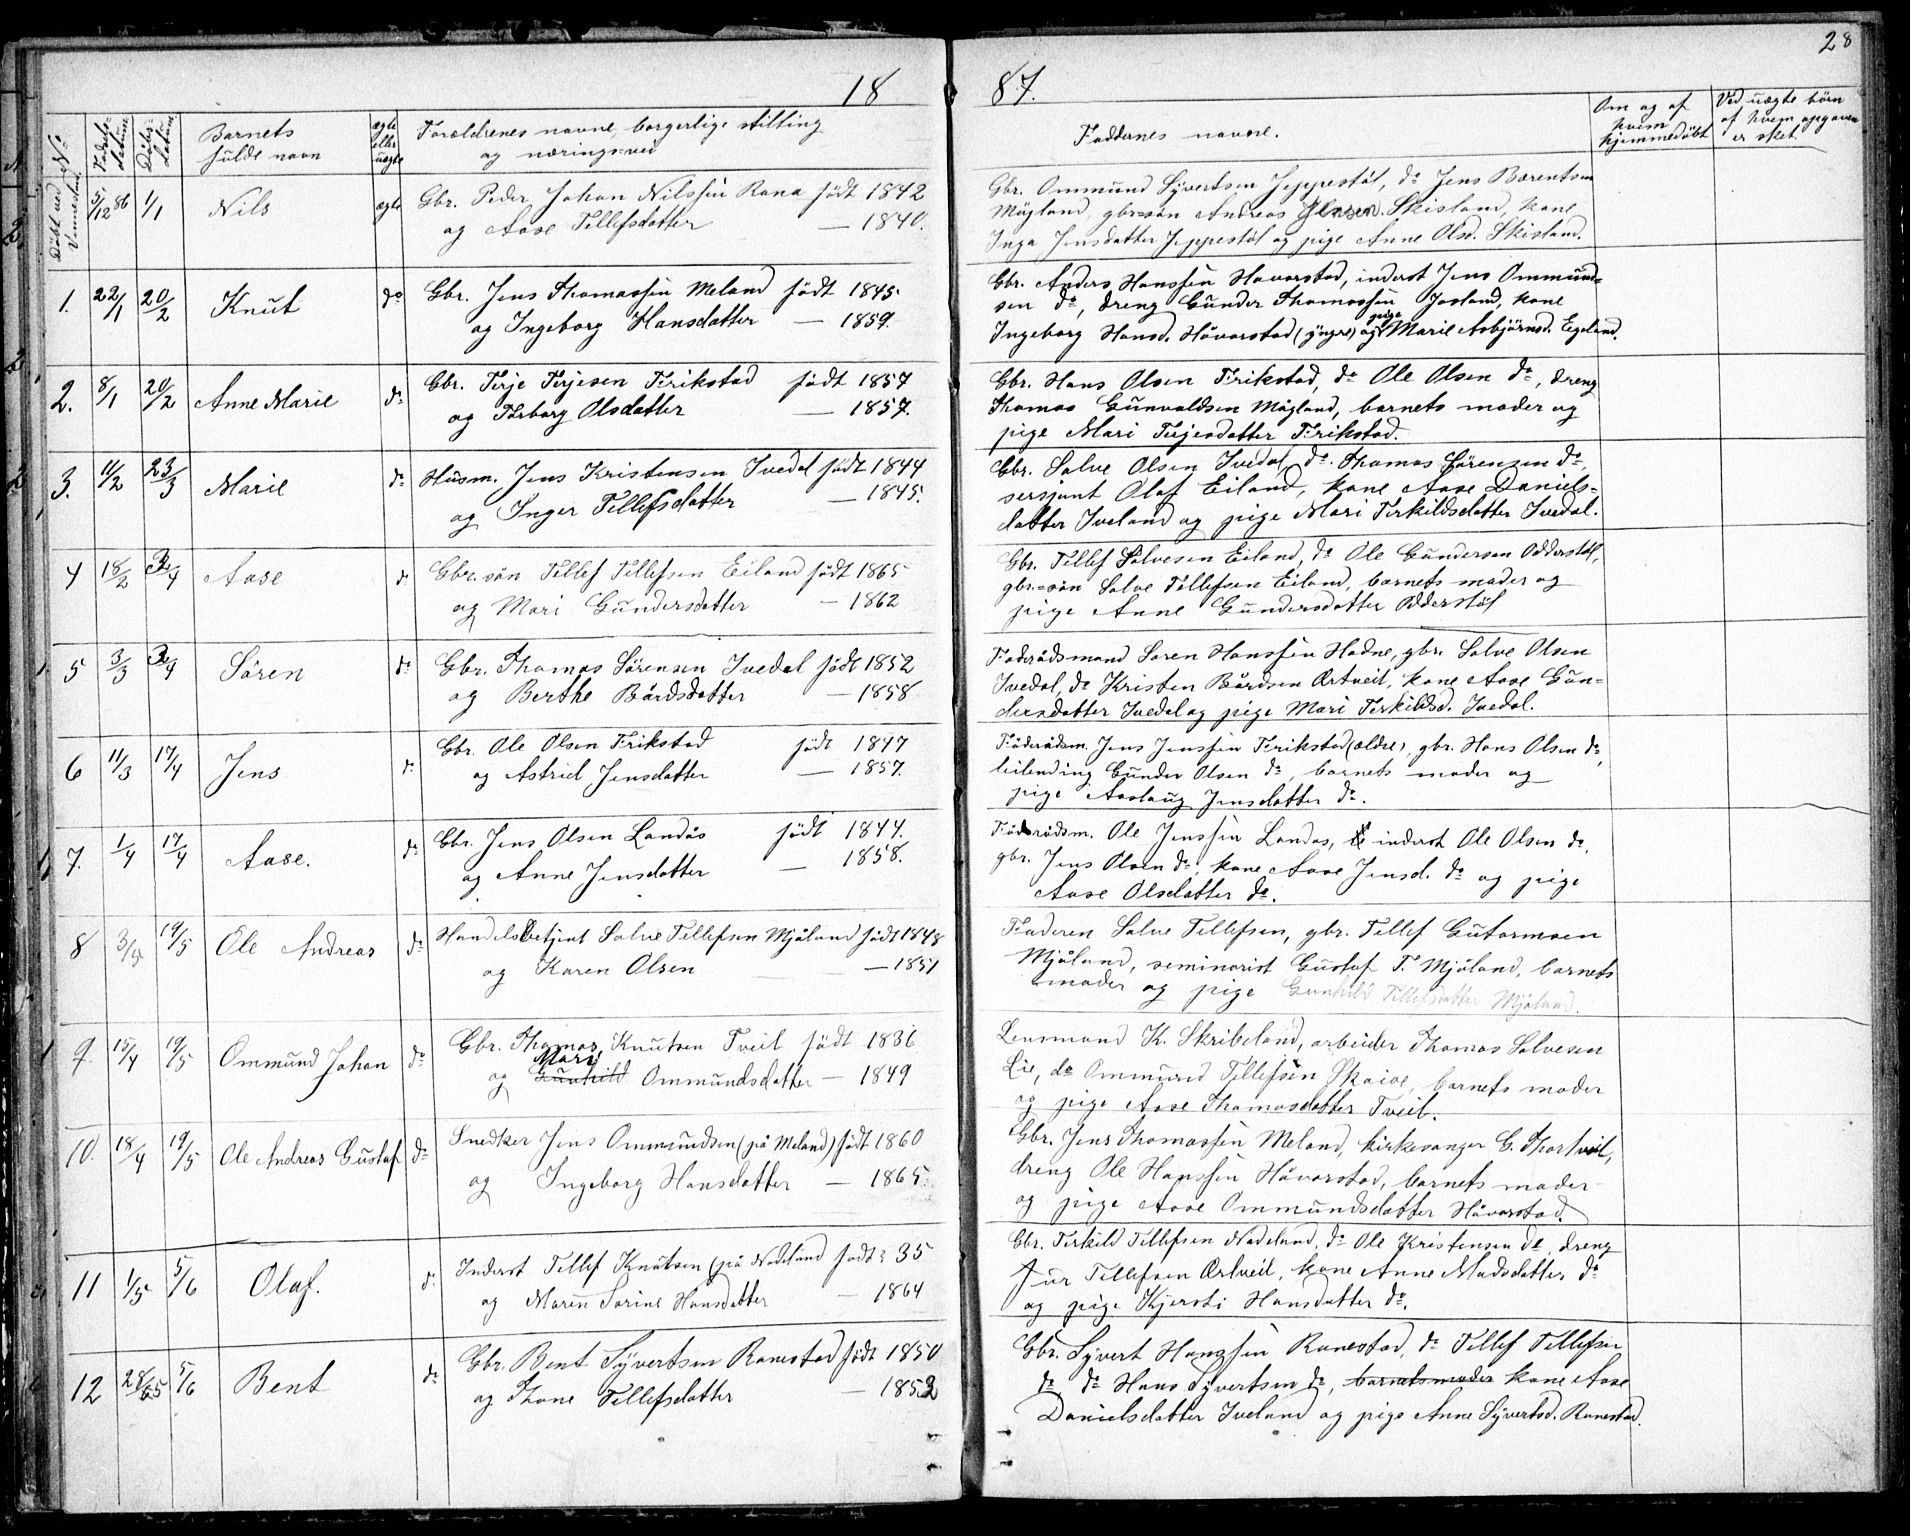 28
18 87.
Döbt ved Vennestad. No
Födsels-datum
Dåbs-datum
Barnets fulde navn
ægte eller uægte
Forældrenes navne, borgerlige stilling
og næringsvei
Faddernes navne.
Om og af hvem hjemmedöbt
Ved uægte börn af hvem opgaven er sket.
5/12 86 1/1 Nils ægte Gbr. Peder Johan Nilssen Rana födt 1842
og Aase Tellefsdatter — 1840.
Gbr. Ommund Syvertsen Jeppestöl, do Jens Bærentsen
Mögland, gbr.sön Andreas Jensen Skisland, kone
Inga Jensdatter Jeppestöl og pige Anne Olsd. Skisland.
1. 22/1 20/2 Knut do Gbr. Jens Thomassen Meland födt 1845
og Ingeborg Hansdatter — 1859.
Gbr. Anders Hanssen Håvorstad, inderst Jens Ommund-
sen do, dreng Gunder Thomassen Josland, kone
Ingeborg Hansd. Håvorstad (yngre) og pige Marie Asbjörnsd. Egeland.
2. 8/1 20/2 Anne Marie do Gbr. Terje Terjesen Frikstad födt 1857
og Torborg Olsdatter — 1857.
Gbr. Hans Olsen Frikstad, do Ole Olsen do, dreng
Thomas Gunvaldsen Mögland, barnets moder og
pige Mari Terjesdatter Frikstad.
3. 11/2 23/3 Marie do Husm. Jens Kristensen Ivedal födt 1844
og Inger Tellefsdatter — 1845.
Gbr. Salve Olsen Ivedal, do. Thomas Sörensen do,
sersjant Olaf Eiland, kone Aase Daniels-
datter Iveland og pige Mari Terkildsdatter Ivedal.
4 18/2 /4 Aase do Gbr.sön Tellef Tellefsen Eiland födt 1865
og Mari Gundersdatter — 1862
Gbr. Tellef Salvesen Eiland, do Ole Gundersen Odderstöl,
gbr.sön Salve Tellefsen Eiland, barnets moder og
pige Anne Gundersdatter Odderstöl
5 3/3 /4 Sören do Gbr. Thomas Sörensen Ivedal födt 1852
og Berthe Bårdsdatter — 1858
Föderådsmand Sören Hanssen Hodne, gbr. Salve Olsen
Ivedal, do Kristen Bårdsen Ærtveit, kone Aase Gun-
dersdatter Ivedal og pige Mari Terkildsd. Ivedal.
6 11/3 17/4 Jens do Gbr. Ole Olsen Frikstad födt 1847
og Astrid Jensdatter — 1857.
Föderådsm. Jens Jenssen Frikstad (ældre), gbr. Hans Olsen do,
leilending Gunder Olsen do, barnets moder og
pige Aaslaug Jensdatter do.
7. 1/4 17/4 Aase. do Gbr. Jens Olsen Landås födt 1844.
og Anne Jensdatter — 1858.
Föderådsm. Ole Jenssen Landås, inderst Ole Olsen do,
gbr. Jens Olsen do, kone Aase Jensd. do og pige
Aase Olsdatter do.
8 3/5 19/5 Ole Andreas do Handelsbetjent Salve Tellefsen Mjåland födt 1848
og Karen Olsen — 1851
Faderen Salve Tellefsen, gbr. Tellef Gutormsen
Mjåland, seminarist Gustaf T. Mjåland, barnets
moder og pige Gunhild Tellefsdatter Mjåland.
9. 15/4 19/5 Ommund Johan do Gbr. Thomas Knutsen Tveit födt 1836
og Gunhild Mari Ommundsdatter — 1849
Lensmand K. Skribeland, arbeider Thomas Salvesen
Lie, do Ommund Tellefsen Skaiaa, barnets moder
og pige Aase Thomasdatter Tveit.
10. 18/4 19/5 Ole Andreas Gustaf do Snedker Jens Ommundsen (på Meland) födt 1860
og Ingeborg Hansdatter — 1865.
Gbr. Jens Thomassen Meland, kirkesanger G. Thortveit,
dreng Ole Hanssen Håvorstad, barnets moder
og pige Aase Ommundsdatter Håvorstad.
11 1/5 5/6 Olaf. do Inderst Tellef Knutsen (på Nodeland födt: 35
og Maren Sorine Hansdatter — 1864
Gbr. Terkild Tellefsen Nodeland, do Ole Kristensen do, dreng
Jur Tellefsen Ærtveit, kone Anne Madsdatter do
og pige Kjersti Hansdatter do.
12 5/6 Bent do Gbr. Bent Syvertsen Ronestad födt 1850
og Thone Tellefsdatter — 1852
Gbr. Syvert Hanssen Ronestad, do Tellef Tellefsen
do, do Hans Syvertsen do, barnets moder kone Aase
Danielsdatter Iveland og pige Anne Syvertsd. Ronestad.